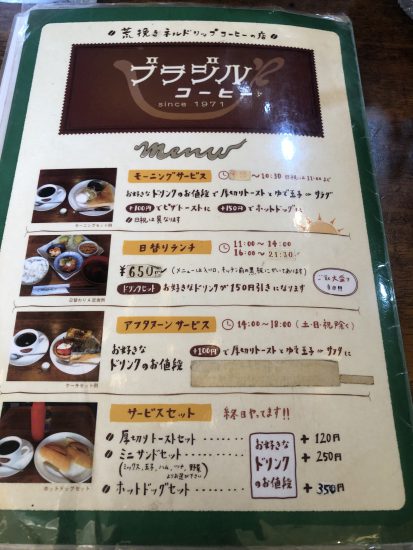 荒挽きネルドリップコーヒーの店
ブラジル
コーヒー
since 1971
menu
モーニングサービス
〜10:30 日祝は11:00まで
お好きなドリンクのお値段で厚切りトーストとゆで玉子 or サラダ
+100円でピザトーストに +150円でホットドッグに
日祝は異なります
モーニングセット例
日替りランチ
11:00〜14:00
16:00〜21:30
¥650
(メニューは入り口、キッチン前の黒板にかいてあります)
ドリンクセット お好きなドリンクが150円引きになります
日替わりA定食例
アフタヌーンサービス
14:00〜18:00(土・日・祝除く)
お好きな
ドリンクのお値段
+100円で厚切りトーストとゆで玉子 or サラダに
ケーキセット例
サービスセット 終日やってます!!
厚切りトーストセット +120円
ミニサンドセット +250円
(ミックス、玉子、ハム、ツナ、野菜
よりお選び下さい)
ホットドッグセット +350円
お好きな
ドリンク
のお値段
ホットドッグセット